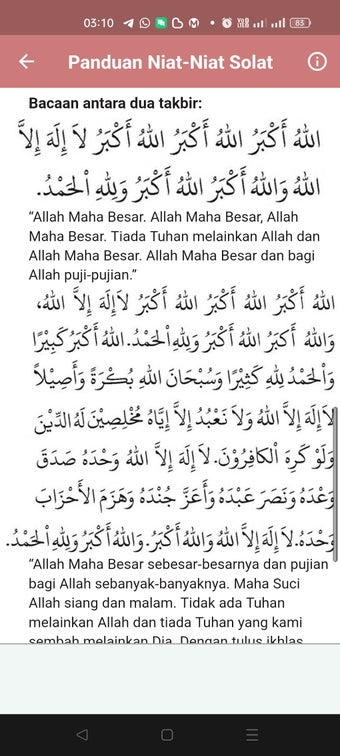 03:10
83
Panduan Niat-Niat Solat
Bacaan antara dua takbir:
اللهُ أَكْبَرُ اللهُ أَكْبَرُ اللهُ أَكْبَرُ لاَ إِلَهَ إِلاَّ
اللهُ وَاللهُ أَكْبَرُ اللهُ أَكْبَرُ وَلِلّهِ اْلحَمْدُ.
“Allah Maha Besar. Allah Maha Besar, Allah
Maha Besar. Tiada Tuhan melainkan Allah dan
Allah Maha Besar. Allah Maha Besar dan bagi
Allah puji-pujian.”
اللهُ أَكْبَرُ اللهُ أَكْبَرُ اللهُ أَكْبَرُ لاَإِلَهَ إِلاَّ اللهُ،
وَاللهُ أَكبَرُ اللهُ أَكْبَرُ وَلِلّهِ اْلحَمْدُ.اللهُ أَكْبَرُ كَبِيْرًا
وَاْلحَمْدُ لِلّهِ كَثِيْرًا وَسُبْحَانَ اللهِ بُكْرَةً وَأَصِيْلاً
لاَإِلَهَ إِلاَّ اللهُ وَلاَ نَعْبُدُ إِلاَّ إِيَّاهُ مُخْلِصِيْنَ لَهُ الدِّيْنَ
وَلَوْ كَرِهَ اْلكَافِرُوْنَ. لاَ إِلَهَ إِلاَّ اللهُ وَحْدَهُ صَدَقَ
وَعْدَهُ وَنَصَرَ عَبْدَهُ وَأَعَزَّ جُنْدَهُ وَهَزَمَ الأَحْزَابَ
وَحْدَهُ.لاَ إِلَهَ إِلاَّ اللهُ وَاللهُ أَكْبَرُ.وَاللهُ أَكْبَرُ وَلِلّهِ اْلحَمْدُ.
“Allah Maha Besar sebesar-besarnya dan pujian
bagi Allah sebanyak-banyaknya. Maha Suci
Allah siang dan malam. Tidak ada Tuhan
melainkan Allah dan tiada Tuhan yang kami
sembah melainkan Dia. Dengan tulus ikhlas